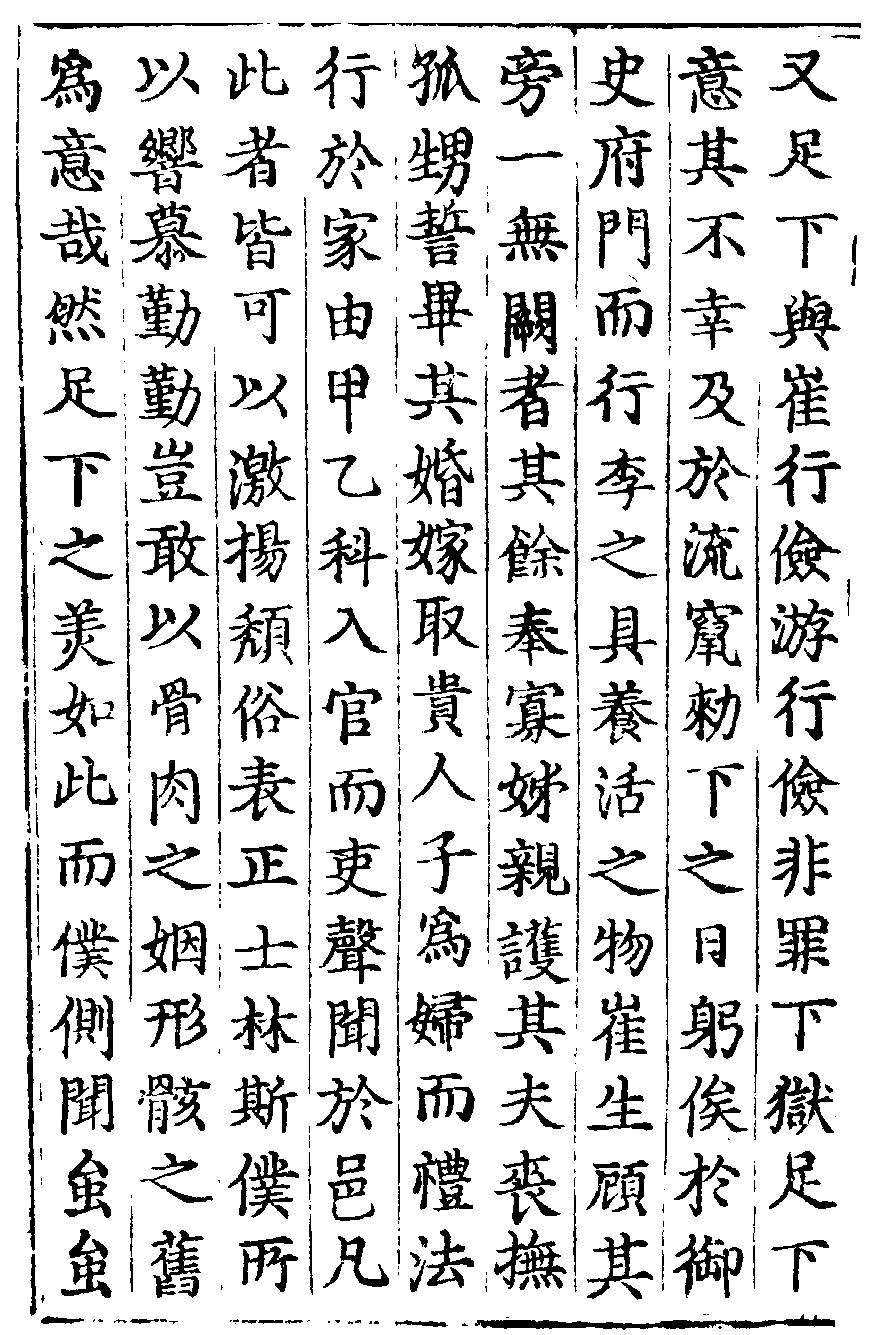 又足下與崔行儉游行儉非罪下獄足下
意其不幸及於流竄勑下之日躬俟於御
史府門而行李之具養活之物崔生顧其
旁一無闕者其餘奉寡姊親護其夫喪撫
孤甥誓畢其婚嫁取貴人子爲婦而禮法
行於家由甲乙科入官而吏聲聞於邑凡
此者皆可以激揚頹俗表正士林斯僕所
以響慕勤勤豈敢以骨肉之姻形骸之舊
爲意哉然足下之美如此而僕側聞蚩蚩